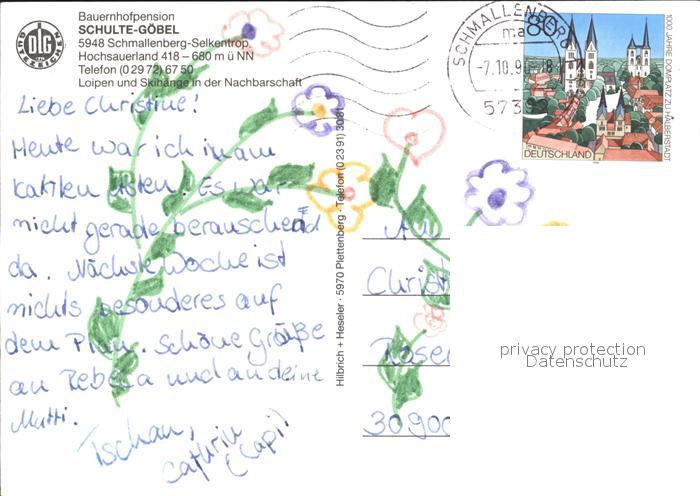 Bauernhofpension
SCHULTE-GÖBEL
5948 Schmallenberg-Selkentrop
Hochsauerland 418 – 680 m ü NN
Telefon (0 29 72) 67 50
Loipen und Skihänge in der Nachbarschaft
DLG
Liebe Christine!
Heute war ich im am
kalten Osten. Es war
nicht gerade berauschend
da. Nächste Woche ist
nichts besonderes auf
dem Plan. Schöne Grüße
an Rebecca und an deine
Mutti.
Tschau,
Cathrin
(Capi)
Hilbrich + Heseler · 5970 Plettenberg · Telefon (0 23 91)
SCHMALLENB
-7.10.9
573
80
DEUTSCHLAND
1000 JAHRE DOMPLATZ ZU HALBERSTADT
An
Christ
Rose
30900
privacy protection
Datenschutz